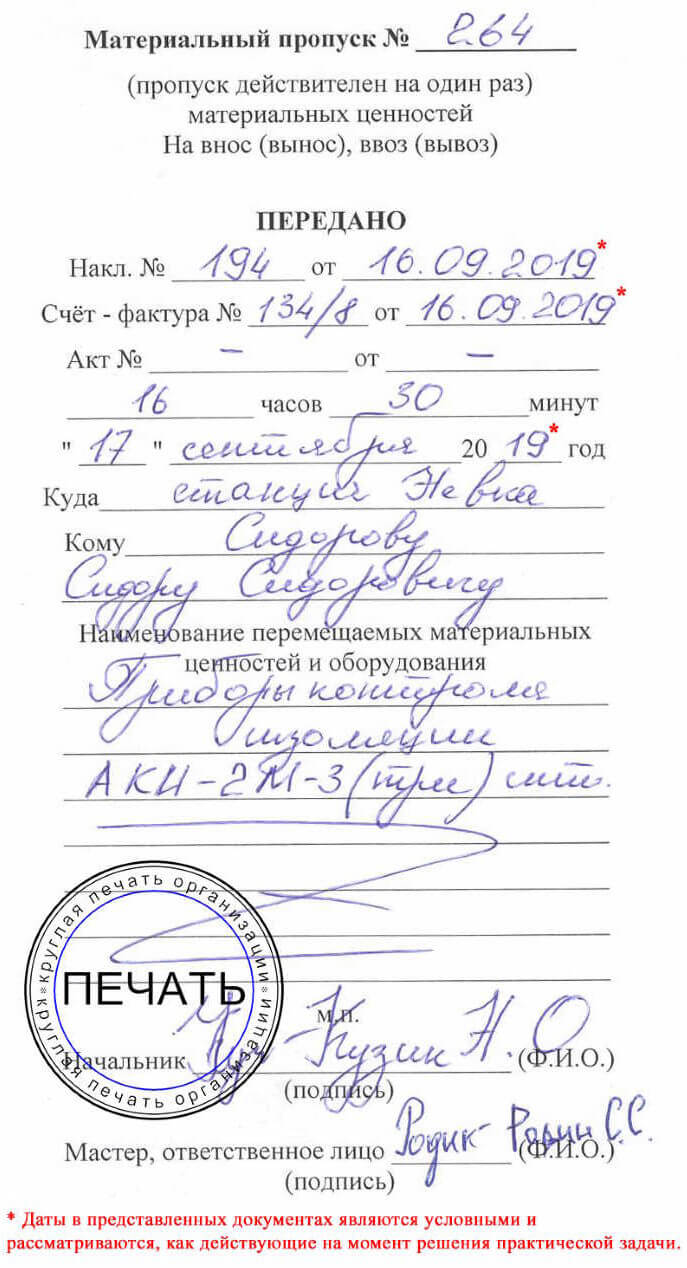 Материальный пропуск № 264
(пропуск действителен на один раз)
материальных ценностей
На внос (вынос), ввоз (вывоз)
ПЕРЕДАНО
Накл. № 194 от 16.09.2019*
Счёт - фактура № 134/8 от 16.09.2019*
Акт № – от –
16 часов 30 минут
" 17 " сентября 20 19* год
Куда станция Невка
Кому Сидорову
Сидору Сидоровичу
Наименование перемещаемых материальных
ценностей и оборудования
Приборы контроля
изоляции
АКИ-2М-3 (три) шт.
круглая печать организации * круглая печать организации *
ПЕЧАТЬ
м.п.
Начальник Кузин Н.О (Ф.И.О.)
(подпись)
Мастер, ответственное лицо Родик Родин С.С. (Ф.И.О.)
(подпись)
* Даты в представленных документах являются условными и
рассматриваются, как действующие на момент решения практической задачи.